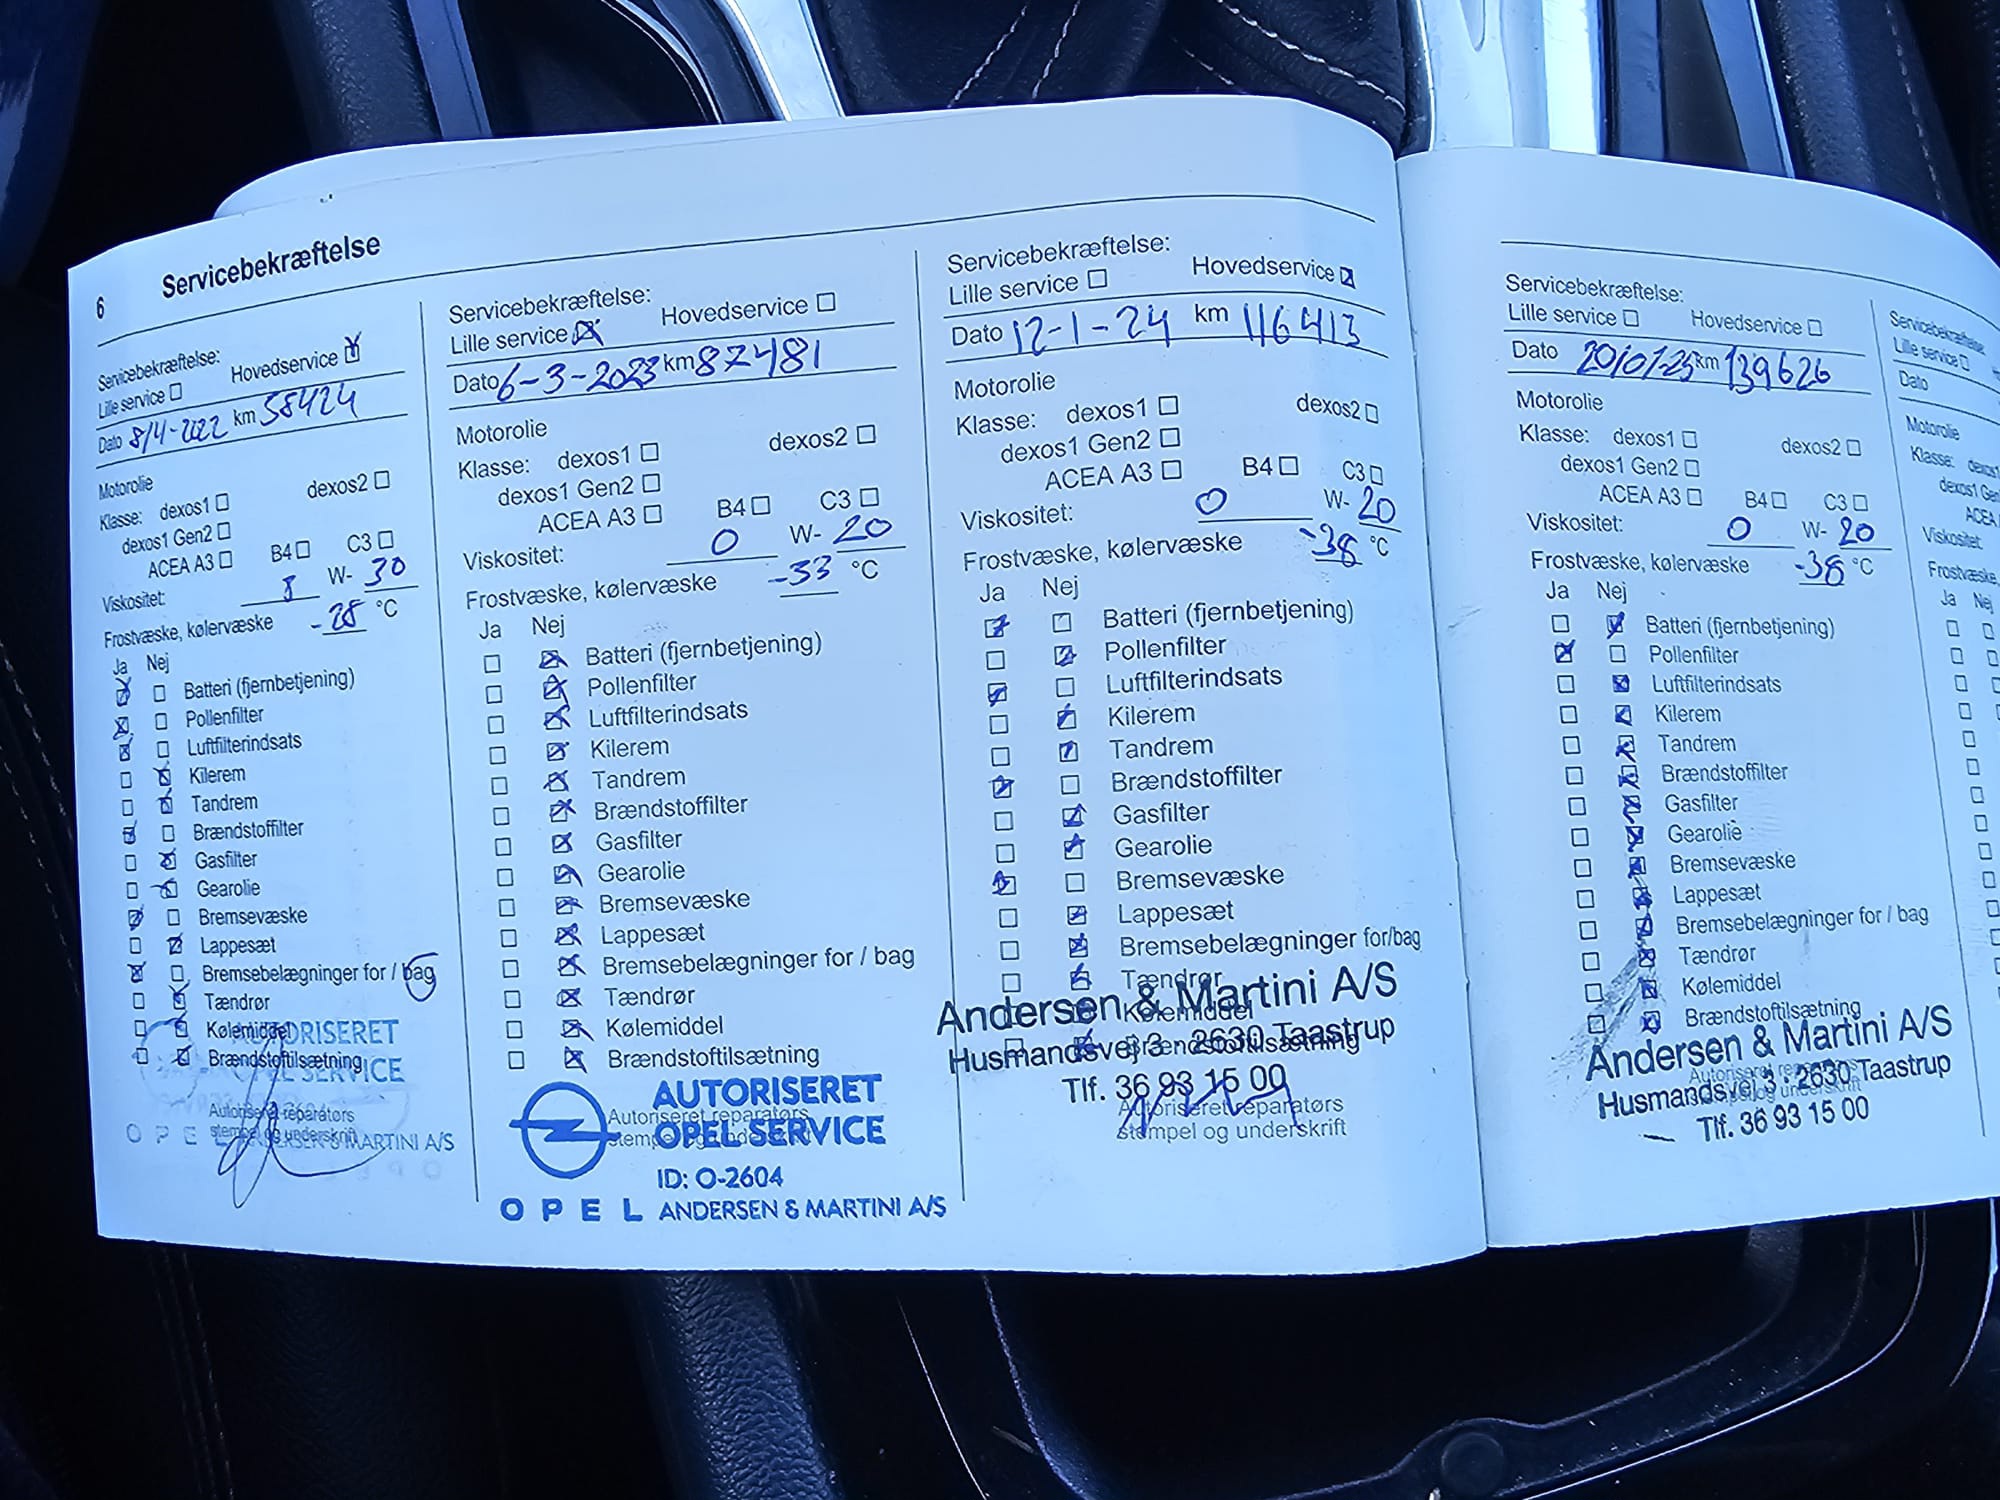 6 Servicebekræftelse
Servicebekræftelse:
Lille service Hovedservice
Dato 8/4-2022 km 58424
Motorolie
Klasse: dexos1 dexos2
dexos1 Gen2
ACEA A3 B4 C3
Viskositet: W-30
Frostvæske, kølervæske -28 °C
Ja Nej
Batteri (fjernbetjening)
Pollenfilter
Luftfilterindsats
Kilerem
Tandrem
Brændstoffilter
Gasfilter
Gearolie
Bremsevæske
Lappesæt
Bremsebelægninger for / bag
Tændrør
Kølemiddel
Brændstoftilsætning
Autoriseret reparatørs
stempel og underskrift
AUTORISERET
OPEL SERVICE
OPEL ANDERSEN & MARTINI A/S
Servicebekræftelse:
Lille service Hovedservice
Dato 6-3-2023 km 87481
Motorolie
Klasse: dexos1 dexos2
dexos1 Gen2
ACEA A3 B4 C3
Viskositet: 0 W-20
Frostvæske, kølervæske -33 °C
Ja Nej
Batteri (fjernbetjening)
Pollenfilter
Luftfilterindsats
Kilerem
Tandrem
Brændstoffilter
Gasfilter
Gearolie
Bremsevæske
Lappesæt
Bremsebelægninger for / bag
Tændrør
Kølemiddel
Brændstoftilsætning
Autoriseret reparatørs
stempel og underskrift
AUTORISERET
OPEL SERVICE
ID: O-2604
OPEL ANDERSEN & MARTINI A/S
Servicebekræftelse:
Lille service Hovedservice
Dato 12-1-24 km 116413
Motorolie
Klasse: dexos1 dexos2
dexos1 Gen2
ACEA A3 B4 C3
Viskositet: 0 W-20
Frostvæske, kølervæske -38 °C
Ja Nej
Batteri (fjernbetjening)
Pollenfilter
Luftfilterindsats
Kilerem
Tandrem
Brændstoffilter
Gasfilter
Gearolie
Bremsevæske
Lappesæt
Bremsebelægninger for/bag
Tændrør
Kølemiddel
Brændstoftilsætning
Andersen & Martini A/S
Husmandsvej 3 · 2630 Taastrup
Tlf. 36 93 15 00
Autoriseret reparatørs
stempel og underskrift
Servicebekræftelse:
Lille service Hovedservice
Dato 20/01-25 km 139626
Motorolie
Klasse: dexos1 dexos2
dexos1 Gen2
ACEA A3 B4 C3
Viskositet: 0 W-20
Frostvæske, kølervæske -38 °C
Ja Nej
Batteri (fjernbetjening)
Pollenfilter
Luftfilterindsats
Kilerem
Tandrem
Brændstoffilter
Gasfilter
Gearolie
Bremsevæske
Lappesæt
Bremsebelægninger for / bag
Tændrør
Kølemiddel
Brændstoftilsætning
Andersen & Martini A/S
Husmandsvej 3 · 2630 Taastrup
Tlf. 36 93 15 00
Servicebekræftelse
Lille service
Dato
Motorolie
Klasse: dexos1
dexos1 Gen
ACEA
Viskositet:
Frostvæske,
Ja Nej